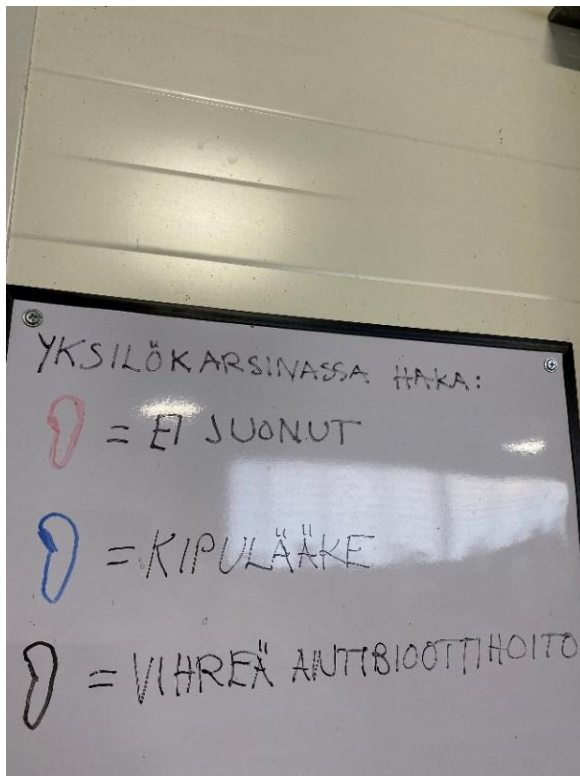 YKSILÖKARSINASSA HAKA:
= EI JUONUT
= KIPULÄÄKE
= VIHREÄ ANTIBIOOTTIHOITO